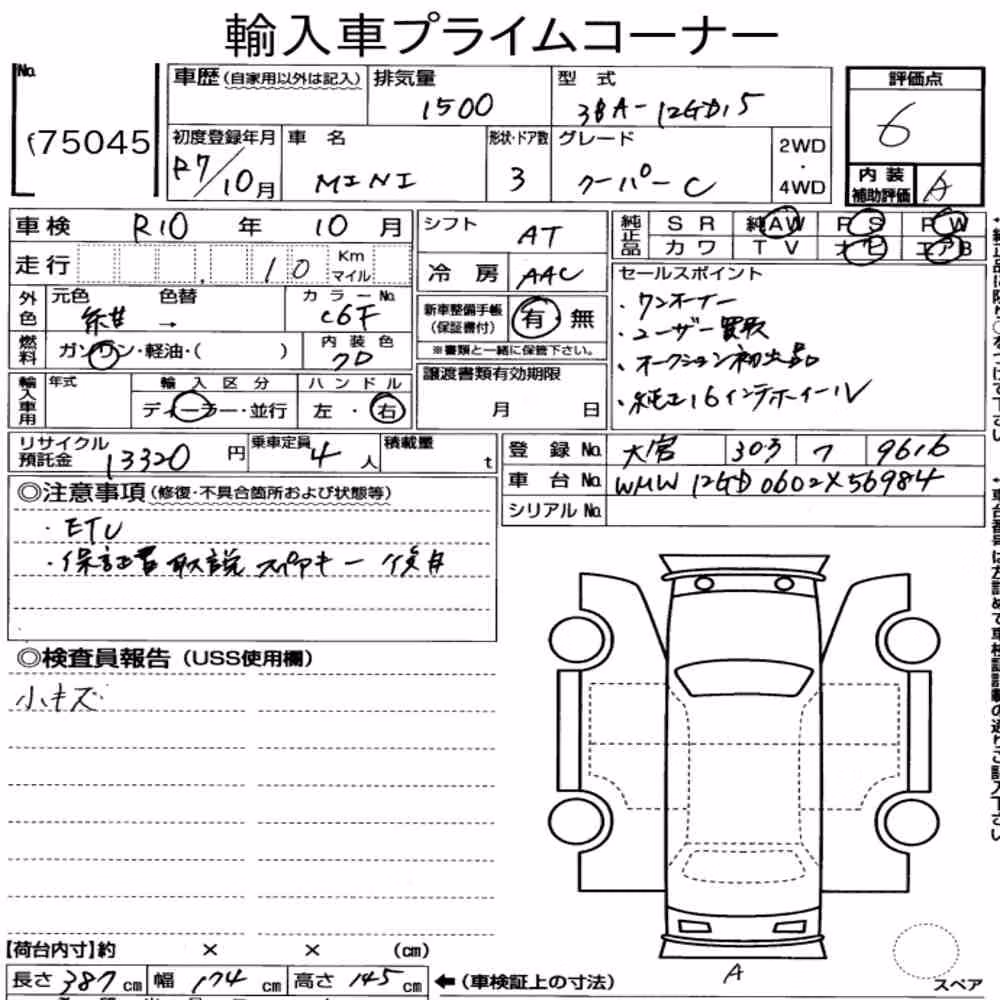 輸入車プライムコーナー
No.
75045
車歴(自家用以外は記入)
排気量
1500
型 式
3BA-12GD15
評価点
6
初度登録年月
R7/10月
車 名
MINI
形状・ドア数
3
グレード
クーパーC
2WD
・
4WD
内 装
補助評価
A
車検 R10 年 10 月
シフト
AT
純正品
S R 純AW P S P W
カ ワ T V ナビ エアB
走行 10 Km マイル
冷 房
AAC
セールスポイント
・ワンオーナー
・ユーザー買取
・オークション初出品
・純正16インチホイール
外色
元色 色替
紺 →
カラーNo.
C6F
新車整備手帳
(保証書付)
有・無
※書類と一緒に保管下さい。
燃料
ガソリン・軽油・( )
内 装 色
クロ
輸入車用
年式
輸 入 区 分
ディーラー・並行
ハ ン ド ル
左 ・ 右
譲渡書類有効期限
月 日
リサイクル
預託金
13320 円
乗車定員
4 人
積載量
t
登 録 No. 大宮 303 フ 9616
車 台 No. WMW12GD0602X56984
シリアル No.
◎注意事項(修復・不具合箇所および状態等)
・ETC
・保証書 取説 スペアキー 後日
◎検査員報告(USS使用欄)
小キズ
A
スペア
【荷台内寸】約 × × (cm)
長さ 387 cm 幅 174 cm 高さ 145 cm
←(車検証上の寸法)